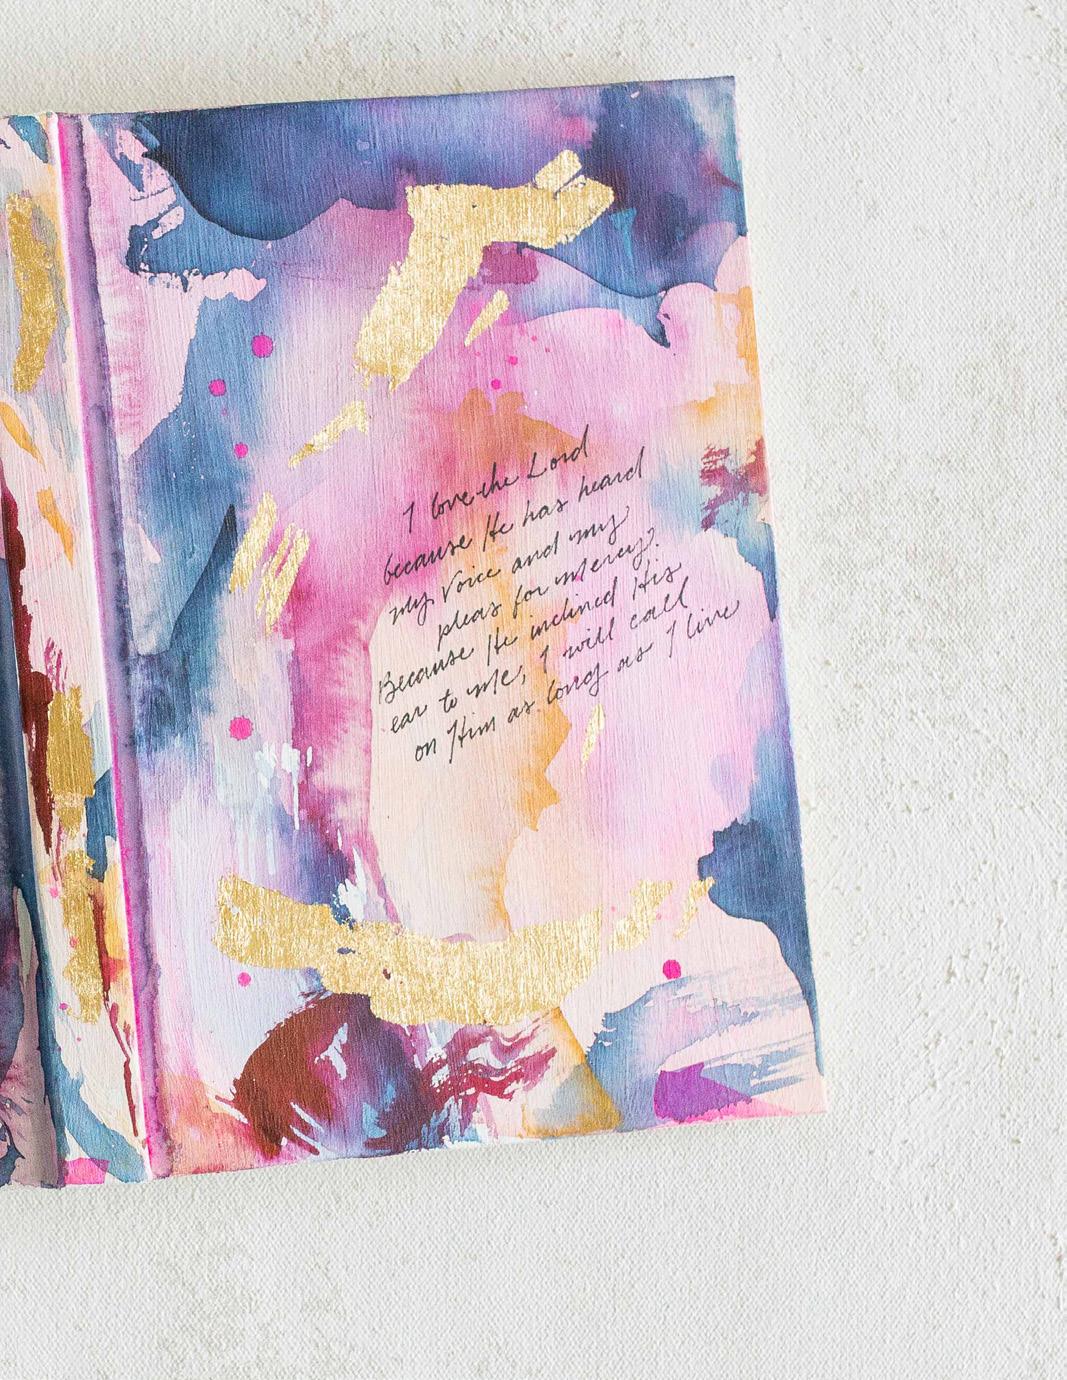 I love the Lord
because He has heard
my voice and my
pleas for mercy.
Because He inclined His
ear to me, I will call
on Him as long as I live